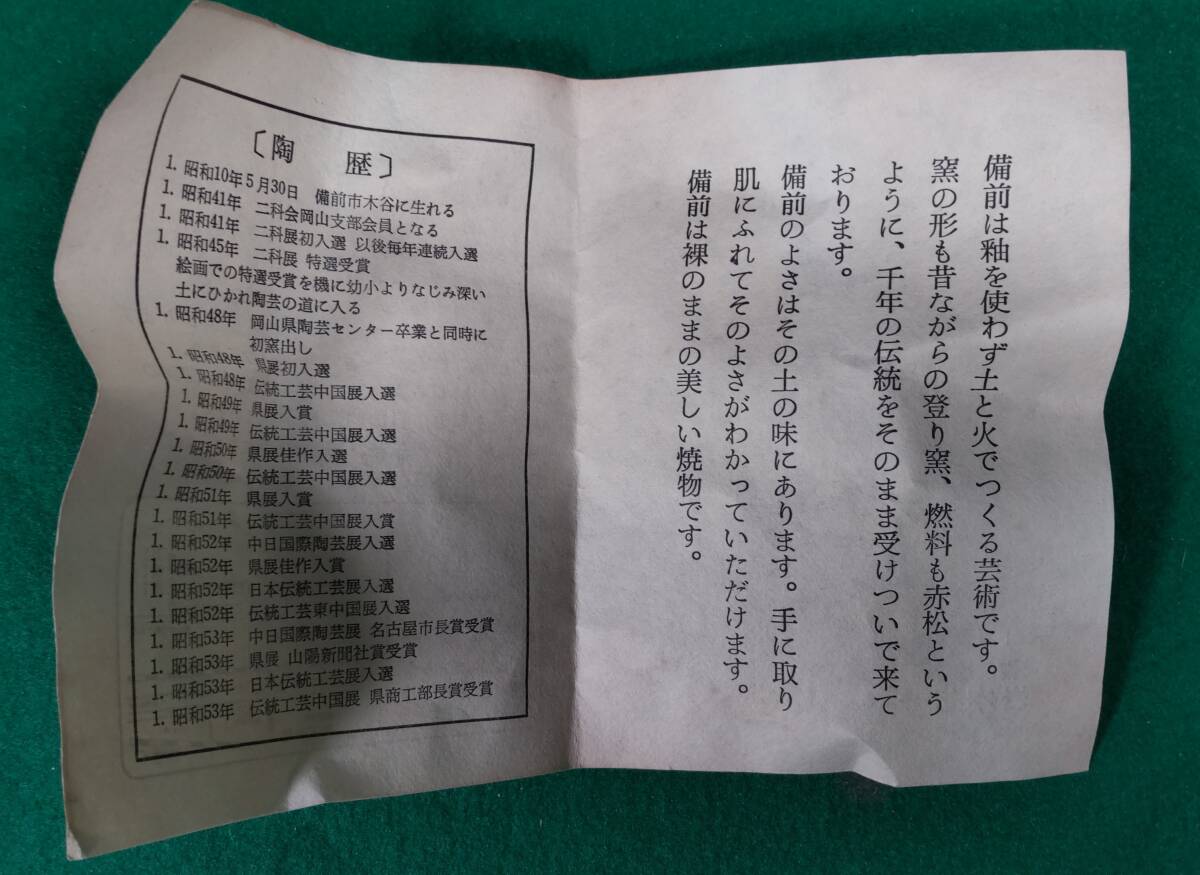 備前は釉を使わず土と火でつくる芸術です。
窯の形も昔ながらの登り窯、燃料も赤松という
ように、千年の伝統をそのまま受けついで来て
おります。
備前のよさはその土の味にあります。手に取り
肌にふれてそのよさがわかっていただけます。
備前は裸のままの美しい焼物です。
〔陶 歴〕
1. 昭和10年5月30日 備前市木谷に生れる
1. 昭和41年 二科会岡山支部会員となる
1. 昭和41年 二科展初入選 以後毎年連続入選
1. 昭和45年 二科展 特選受賞
絵画での特選受賞を機に幼小よりなじみ深い
土にひかれ陶芸の道に入る
1. 昭和48年 岡山県陶芸センター卒業と同時に
初窯出し
1. 昭和48年 県展初入選
1. 昭和48年 伝統工芸中国展入選
1. 昭和49年 県展入賞
1. 昭和49年 伝統工芸中国展入選
1. 昭和50年 県展佳作入選
1. 昭和50年 伝統工芸中国展入選
1. 昭和51年 県展入賞
1. 昭和51年 伝統工芸中国展入賞
1. 昭和52年 中日国際陶芸展入選
1. 昭和52年 県展佳作入賞
1. 昭和52年 日本伝統工芸展入選
1. 昭和52年 伝統工芸東中国展入選
1. 昭和53年 中日国際陶芸展 名古屋市長賞受賞
1. 昭和53年 県展 山陽新聞社賞受賞
1. 昭和53年 日本伝統工芸展入選
1. 昭和53年 伝統工芸中国展 県商工部長賞受賞